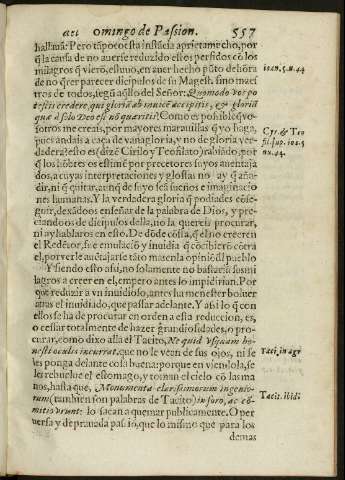 omingo de Passion. 557
hallaua: Pero tãpoco esta instãcia aprieta mucho, por
q̃ la causa de no auerse reduzido estos perfidos cõ los
milagros q̃ vierõ, estuuo, en auer hecho pũto de hõra
de no q̃rer parecer dicipulos de su Magest. sino maes
tros de todos, segũ aq̃llo del Señor: Quomodo vos po
testis credere, qui gloriã ab inuicẽ accipitis, & gloriã
quæ à solo Deo est nõ quæritis? Como es posible q̃ vo-
sotros me creais, por mayores marauillas q̃ yo haga,
pues andais a caça de vanagloria, y no de gloria ver-
dadera: esto es (dizẽ Cirilo y Teofilato) rabinado, por
q̃ los hõbres os estimẽ por precetores suyos auentaja
dos, a cuyas interpretaciones y glossas no ay q̃ aña-
dir, ni q̃ quitar, aunq̃ de suyo seã sueños e imaginacio
nes humanas. Y la verdadera gloria q̃ podiades cõse-
guir, dexãdoos enseñar de la palabra de Dios, y pre-
ciandoos de dicipulos della, no la quereis procurar,
ni ay hablaros en esto. De dõde cõsta, q̃ el no creer en
el Redẽtor, fue emulaciõ y inuidia q̃ cõcibierõ cõtra
el, por verle auẽtajarse tãto mas en la opiniõ del pueblo
Y siendo esto assi, no solamente no bastarã sus mi
lagros a creer en el, empero antes lo impidirian. Por
que reduzir a vn inuidioso, antes ha menester boluer
atras el inuidiado, que passar adelante. Y assi lo q̃ con
ellos se ha de procurar en orden a esta reduccion, es,
o cessar totalmente de hazer grandiosidades, o pro-
curar, como dixo alla el Tacito, Ne quid vsquam ho-
nesti oculis incurrat, que no le vean de sus ojos, ni se
les ponga delante cosa buena: porque en viendola, se
les rebuelue el estomago, y toman el cielo cõ las ma
nos, hasta que, Monumenta clarissimorum ingenio-
rum (tambien son palabras de Tacito) in foro, ac co-
mitio vrunt: lo sacan a quemar publicamente. O per
uersa y deprauada passiõ, que lo mismo que para los
demas
ioan. 5. n. 44
Cyr. & Teo
fil. sup. ioã. 5
nu. 44.
Taci. in agr
Tacit. ibid.